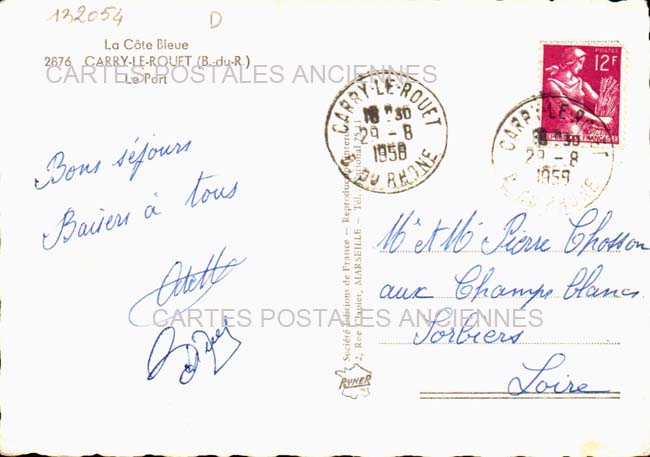 132054
D
La Côte Bleue
2876 CARRY-LE-ROUET (B.-du-R.)
Le Port
CARTES POSTALES ANCIENNES
Bons séjours
Baisers à tous
Odette
CARRY-LE-ROUET
18 H 30
29-8
1958
B. DU RHÔNE
POSTES
12F
CARRY-LE-R
18 H 30
29-8
1958
Société Editions de France — Reproduction
2, Rue Clapier, MARSEILLE — Tél.
RYNER
Mr et Me Pierre Chosson
aux Champs blancs
Sorbiers
Loire
CARTES POSTALES ANCIENNES